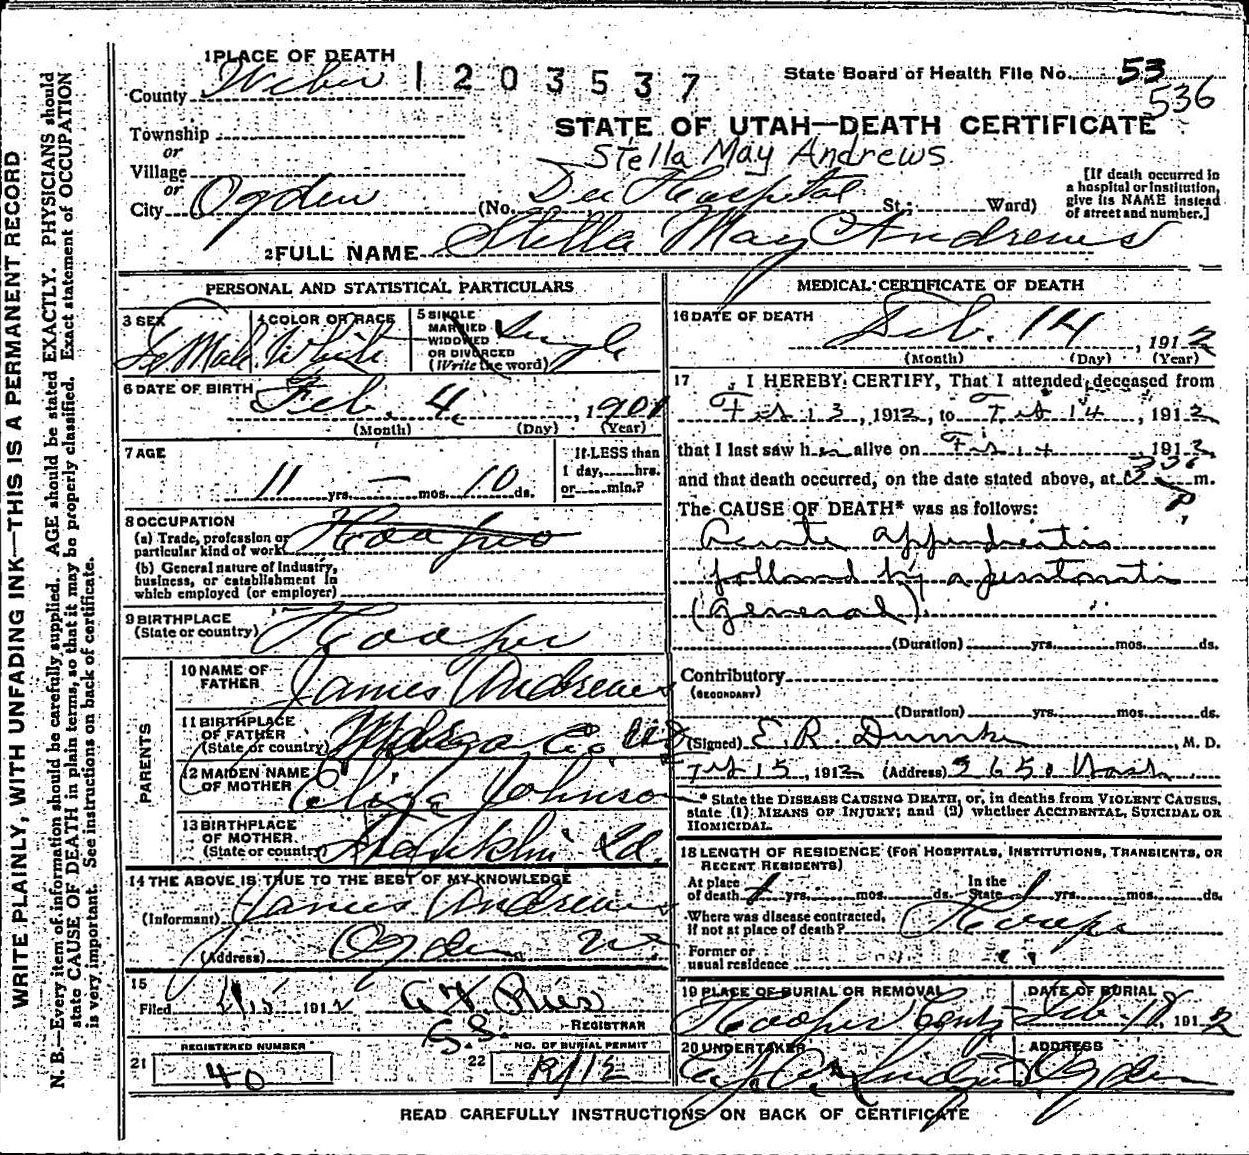 WRITE PLAINLY, WITH UNFADING INK—THIS IS A PERMANENT RECORD
N. B.—Every item of information should be carefully supplied. AGE should be stated EXACTLY. PHYSICIANS should
state CAUSE OF DEATH in plain terms, so that it may be properly classified. Exact statement of OCCUPATION
is very important. See instructions on back of certificate.
1 PLACE OF DEATH
County Weber
1203537
State Board of Health File No. 53
536
Township
or
Village
or
City Ogden
STATE OF UTAH—DEATH CERTIFICATE
Stella May Andrews
(No. Dee Hospital St.; Ward)
[If death occurred in
a hospital or institution,
give its NAME instead
of street and number.]
2 FULL NAME Stella May Andrews
PERSONAL AND STATISTICAL PARTICULARS
3 SEX
Fe Male
4 COLOR OR RACE
White
5 SINGLE
MARRIED
WIDOWED
OR DIVORCED
(Write the word)
Single
6 DATE OF BIRTH
Feb. 4, 1901
(Month) (Day) (Year)
7 AGE
11 yrs. — mos. 10 ds.
If LESS than
1 day, hrs.
or min.?
8 OCCUPATION
(a) Trade, profession or
particular kind of work
(b) General nature of Industry,
business, or establishment in
which employed (or employer)
9 BIRTHPLACE
(State or country) Hooper
PARENTS
10 NAME OF
FATHER James Andrews
11 BIRTHPLACE
OF FATHER
(State or country) Co
12 MAIDEN NAME
OF MOTHER Eliza Johnson
13 BIRTHPLACE
OF MOTHER
(State or country) Franklin Id.
14 THE ABOVE IS TRUE TO THE BEST OF MY KNOWLEDGE
(Informant) James Andrews
(Address) Ogden
15
Filed 1912
REGISTRAR
21 REGISTERED NUMBER
40
22 NO. OF BURIAL PERMIT
MEDICAL CERTIFICATE OF DEATH
16 DATE OF DEATH
Feb. 14, 1912
(Month) (Day) (Year)
17 I HEREBY CERTIFY, That I attended deceased from
Feb 13, 1912, to Feb 14, 1912
that I last saw her alive on Feb 14 1912
and that death occurred, on the date stated above, at m.
The CAUSE OF DEATH* was as follows:
Acute appendicitis
followed by a peritonitis
(general).
(Duration) yrs. mos. ds.
Contributory
(SECONDARY)
(Duration) yrs. mos. ds.
(Signed) E. R. Dumke, M. D.
Feb 15, 1912 (Address) 2650 Wash
* State the DISEASE CAUSING DEATH, or, in deaths from VIOLENT CAUSES,
state (1) MEANS OF INJURY; and (2) whether ACCIDENTAL, SUICIDAL OR
HOMICIDAL.
18 LENGTH OF RESIDENCE (FOR HOSPITALS, INSTITUTIONS, TRANSIENTS, OR
RECENT RESIDENTS)
At place
of death yrs. mos. ds.
In the
State yrs. mos. ds.
Where was disease contracted,
If not at place of death? Hooper
Former or
usual residence " "
19 PLACE OF BURIAL OR REMOVAL
Hooper
DATE OF BURIAL
Feb. 18, 1912
20 UNDERTAKER
ADDRESS
Ogden
READ CAREFULLY INSTRUCTIONS ON BACK OF CERTIFICATE